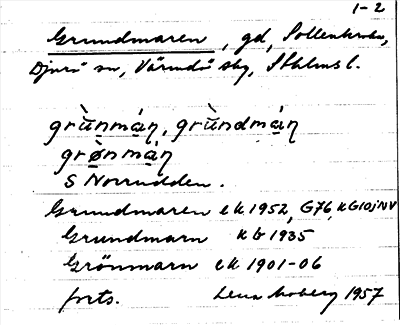 1-2
Grundmaren, gd, Sollenkroka,
Djurö sn, Värmdö skg, Sthlms l.
grùnmáņ, grùndmáņ
grø̀nmáņ
S Norrudden.
Grundmaren ek 1952, G76, KG10jNV
Grundmarn KG 1935
Grönmarn ek 1901-06
forts. Lena Moberg 1957